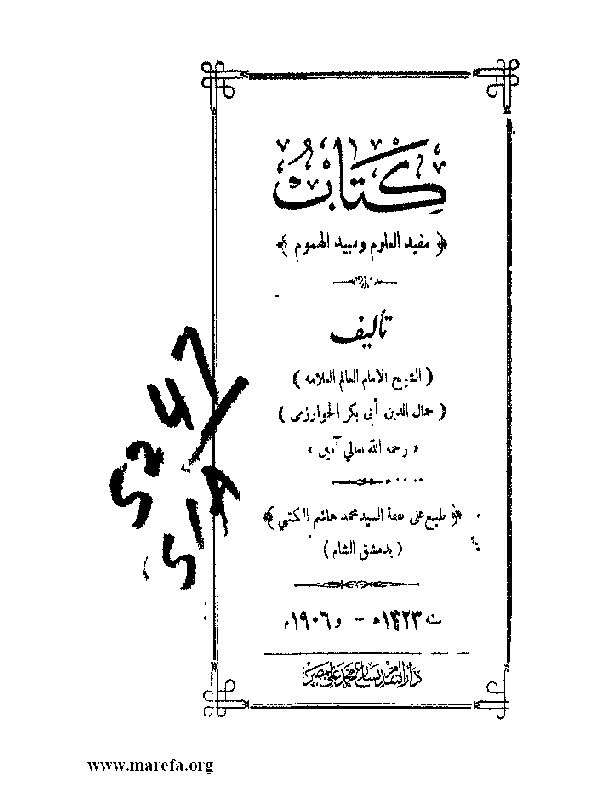 كتاب
﴿ مفيد العلوم ومبيد الهموم ﴾
تأليف
( الشيخ الامام العالم العلامه )
( جمال الدين أبي بكر الخوارزمي )
« رحمه الله تعالى آمين »
﴿ طبع على نفقة السيد محمد هاشم الكتبي ﴾
( بدمشق الشام )
١٣٢٣ھ - و ١٩٠٦م
محمد علي بمصر
5247
www.marefa.org